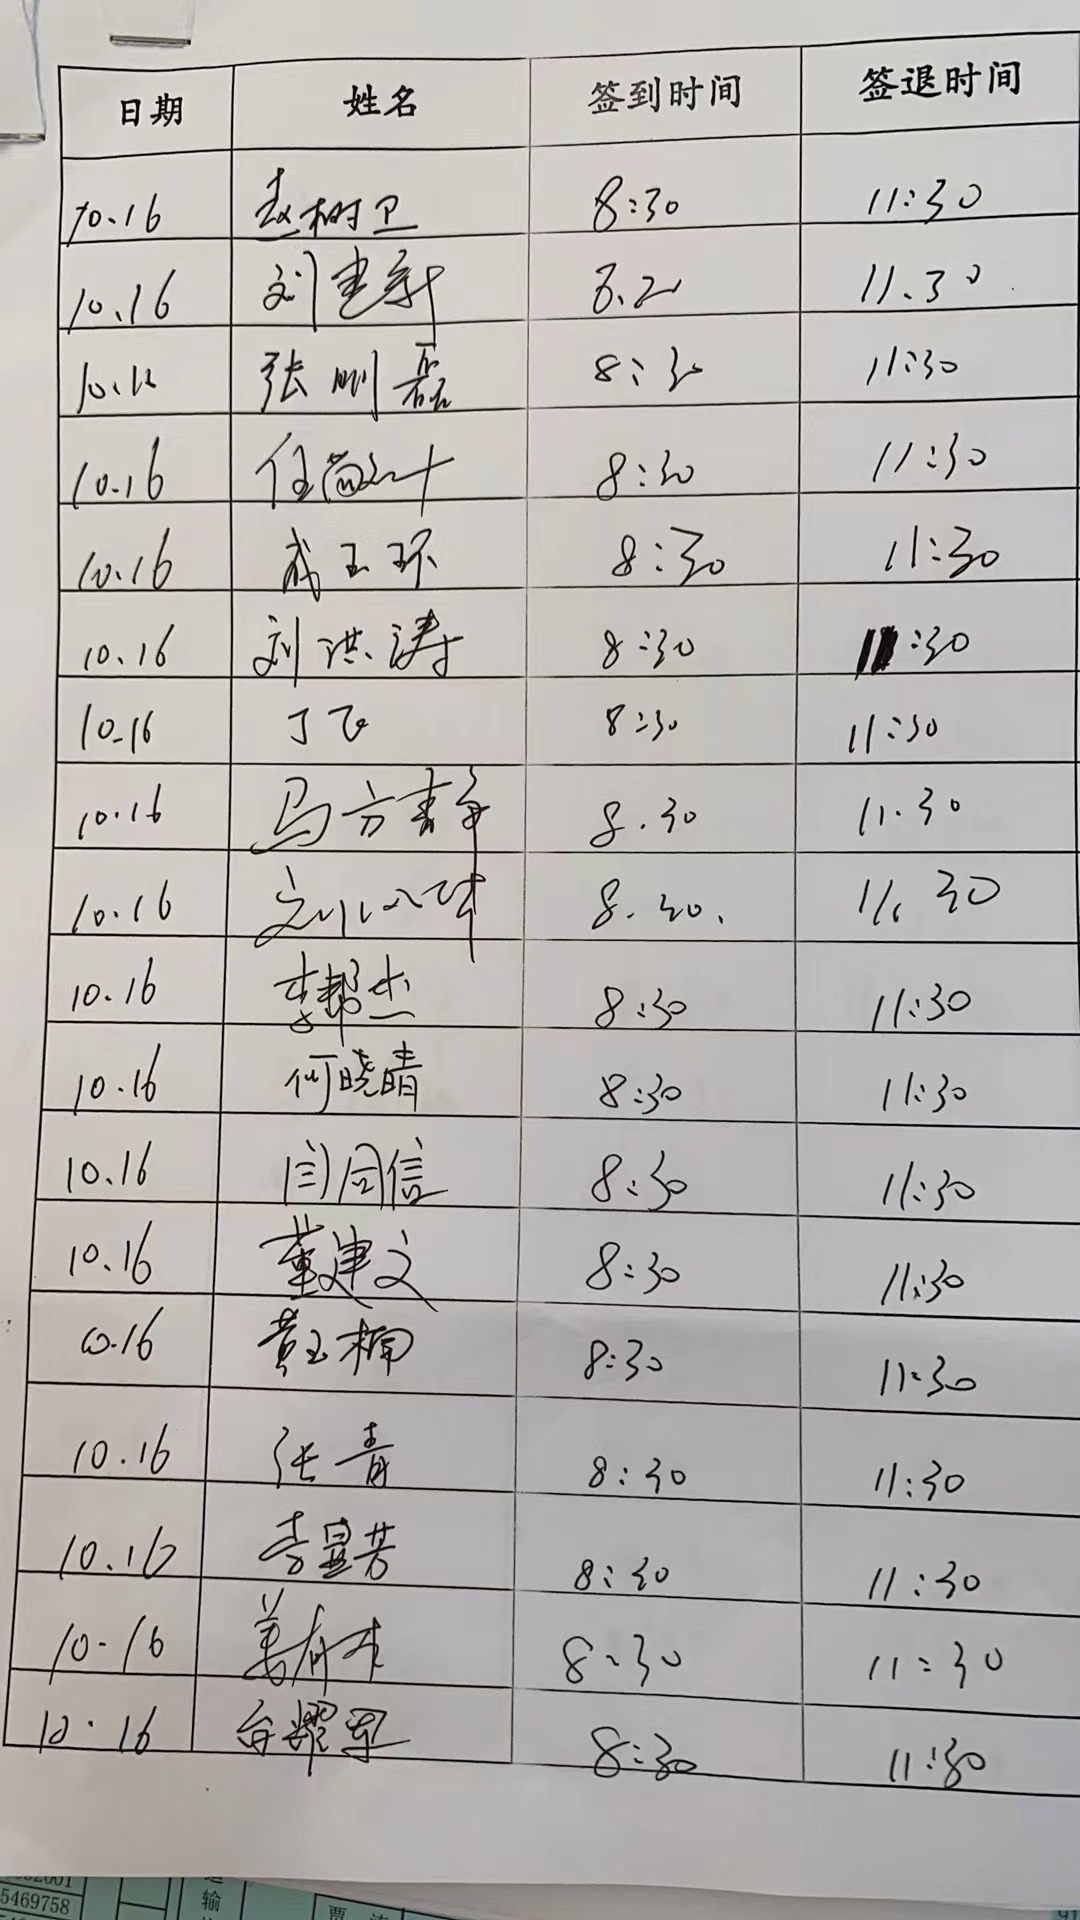 日期 姓名 签到时间 签退时间
10.16 赵树卫 8:30 11:30
10.16 刘建新 11.30
张刚磊 8:30 11:30
10.16 任 8:30 11:30
10.16 成玉环 8:30 11:30
10.16 刘洪涛 8:30 11:30
10.16 丁飞 8:30 11:30
10.16 马方静 8.30 11.30
10.16 8.30. 11.30
10.16 李帮杰 8:30 11:30
10.16 何晓晴 8:30 11:30
10.16 闫同信 8:30 11:30
10.16 董建文 8:30 11:30
10.16 黄玉楠 8:30 11:30
10.16 张青 8:30 11:30
10.16 李显芳 8:30 11:30
10-16 姜有 8:30 11:30
10.16 台耀军 8:30 11:30
5469758
输
贾